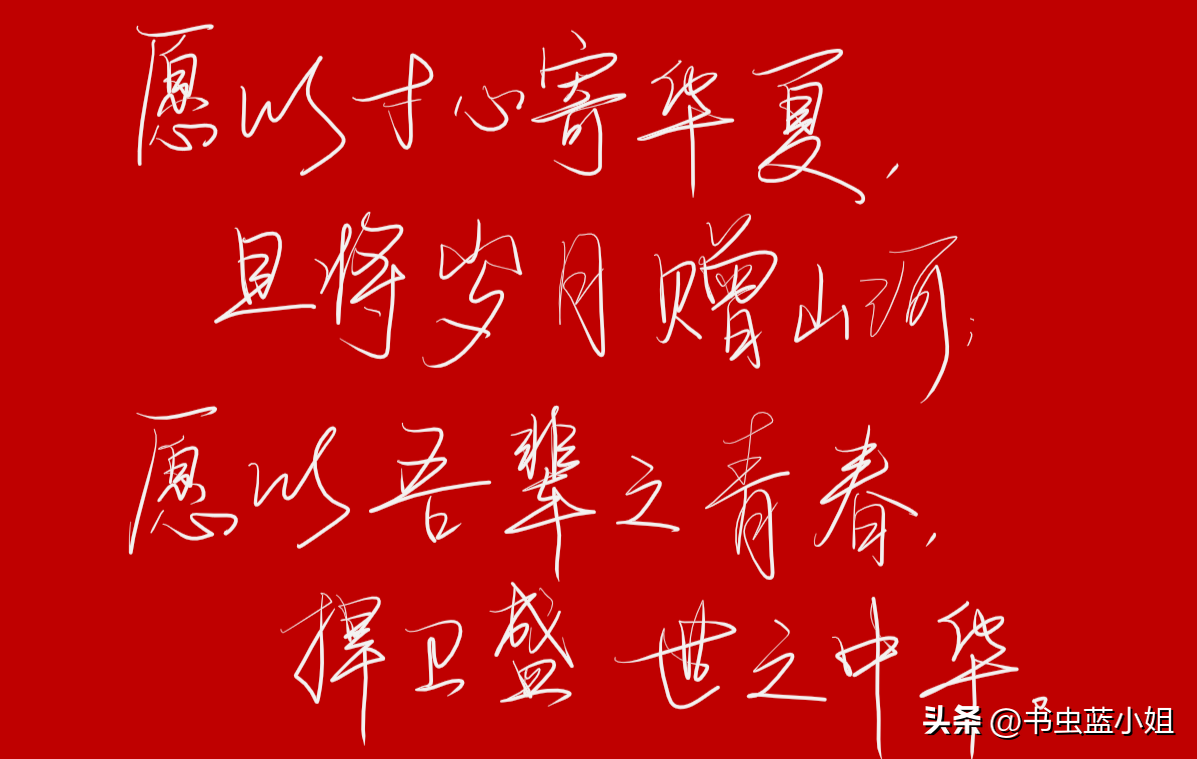 愿以寸心寄华夏，
且将岁月赠山河；
愿以吾辈之青春，
捍卫盛世之中华。
头条 @书虫蓝小姐